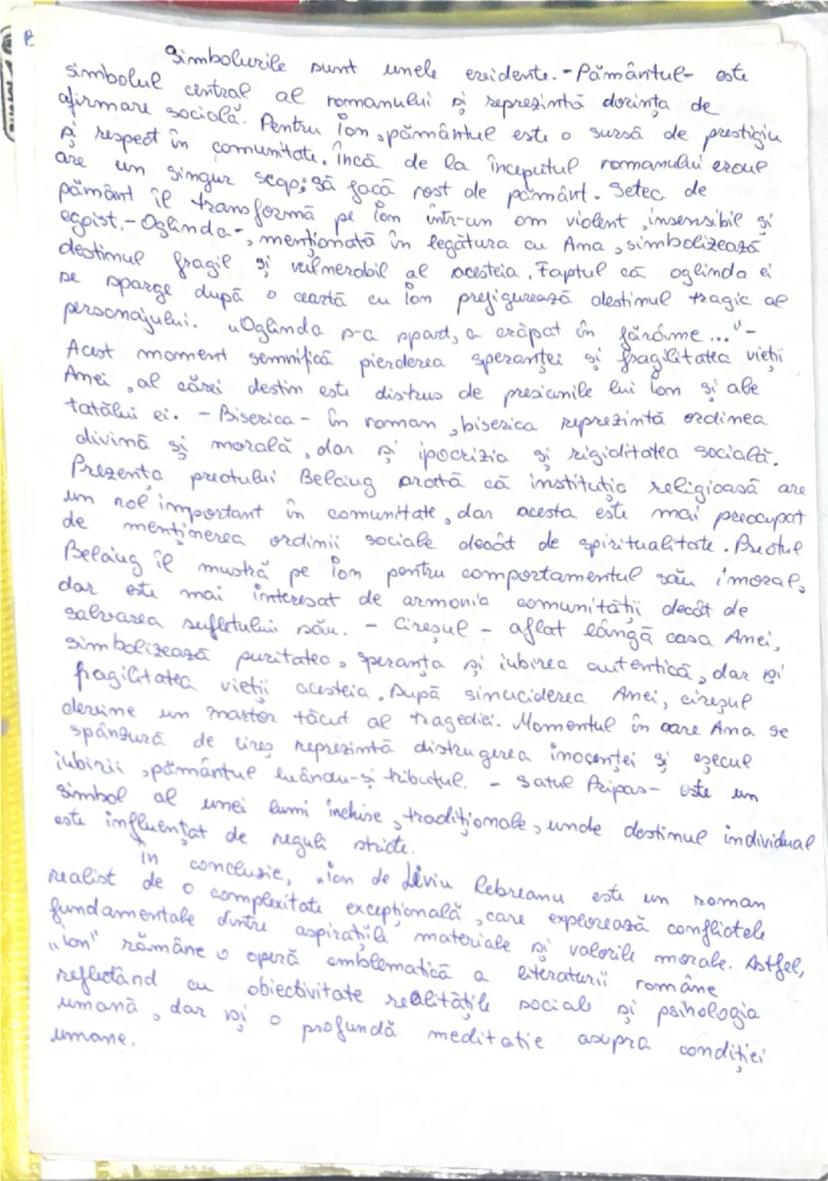 Simbolurile sunt unele evidente. - Pământul - este
simbolul central al romanului și reprezintă dorința de
afirmare socială. Pentru Ion, pământul este o sursă de prestigiu
și respect în comunitate. Încă de la începutul romanului eroul
are un singur scop; să facă rost de pământ. Setec de
pământ îl transformă pe Ion într-un om violent, insensibil și
egoist. - Oglinda -, menționată în legătura cu Ana, simbolizează
destinul fragil și vulnerabil al acesteia. Faptul că oglinda ei
se sparge după o ceartă cu Ion prefigurează destinul tragic al
personajului. „Oglinda s-a spart, a crăpat în fărâme..." -
Acest moment semnifică pierderea speranței și fragilitatea vieții
Anei, al cărei destin este distrus de presiunile lui Ion și ale
tatălui ei. - Biserica - în roman, biserica reprezintă ordinea
divină și morală, dar și ipocrizia și rigiditatea socială.
Prezența preotului Belciug arată că instituția religioasă are
un rol important în comunitate, dar acesta este mai preocupat
de menținerea ordinii sociale decât de spiritualitate. Preotul
Belciug îl mustră pe Ion pentru comportamentul său imoral,
dar este mai interesat de armonia comunității decât de
salvarea sufletului său. - Cireșul - aflat lângă casa Anei,
simbolizează puritatea, speranța și iubirea autentică, dar și
fragilitatea vieții acesteia. După sinuciderea Anei, cireșul
devine un martor tăcut al tragediei. Momentul în care Ana se
spânzură de cireș reprezintă distrugerea inocenței și eșecul
iubirii, pământul luându-și tributul. - Satul Pripas - este un
simbol al unei lumi închise, tradiționale, unde destinul individual
este influențat de reguli stricte.
În concluzie, „Ion de Liviu Rebreanu este un roman
realist de o complexitate excepțională, care explorează conflictele
fundamentale dintre aspirațiile materiale și valorile morale. Astfel,
„Ion" rămâne o operă emblematică a literaturii române
reflectând cu obiectivitate realitățile sociale și psihologia
umană, dar și o profundă meditație asupra condiției
umane.